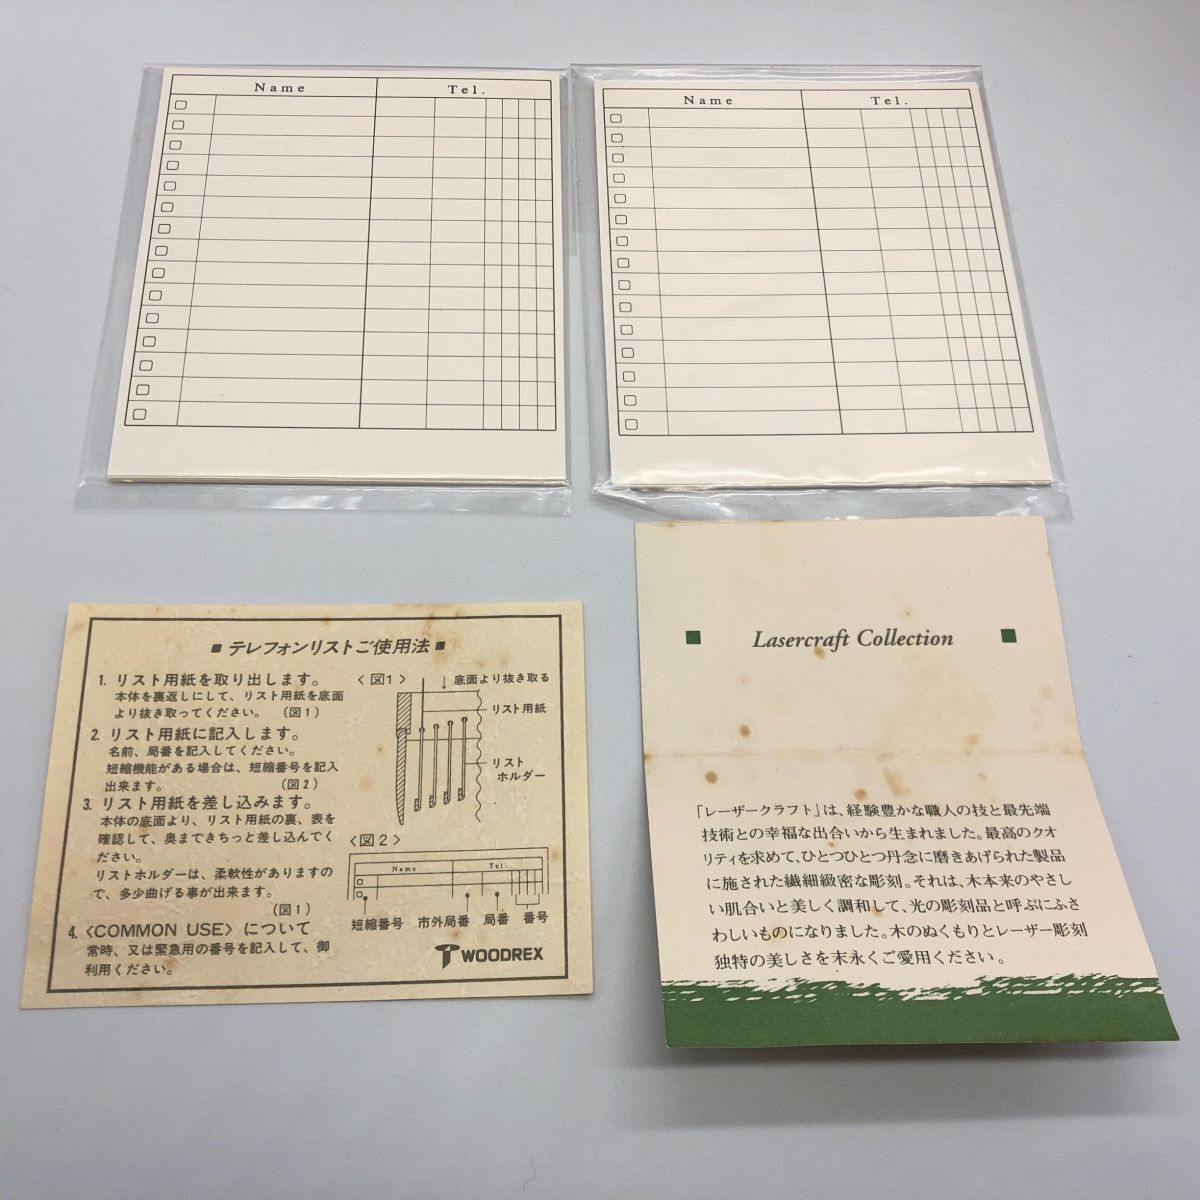 Name Tel.
Name Tel.
■ テレフォンリストご使用法 ■
1. リスト用紙を取り出します。
本体を裏返しにして、リスト用紙を底面
より抜き取ってください。 (図1)
2. リスト用紙に記入します。
名前、局番を記入してください。
短縮機能がある場合は、短縮番号を記入
出来ます。 (図2)
3. リスト用紙を差し込みます。
本体の底面より、リスト用紙の裏、表を
確認して、奥まできちっと差し込んでく
ださい。
リストホルダーは、柔軟性がありますの
で、多少曲げる事が出来ます。
(図1)
4. 〈COMMON USE〉について
常時、又は緊急用の番号を記入して、御
利用ください。
〈図1〉
底面より抜き取る
リスト用紙
リスト
ホルダー
〈図2〉
Name Tel.
短縮番号 市外局番 局番 番号
WOODREX
Lasercraft Collection
「レーザークラフト」は、経験豊かな職人の技と最先端
技術との幸福な出合いから生まれました。最高のクオ
リティを求めて、ひとつひとつ丹念に磨きあげられた製品
に施された繊細緻密な彫刻。それは、木本来のやさし
い肌合いと美しく調和して、光の彫刻品と呼ぶにふさ
わしいものになりました。木のぬくもりとレーザー彫刻
独特の美しさを末永くご愛用ください。